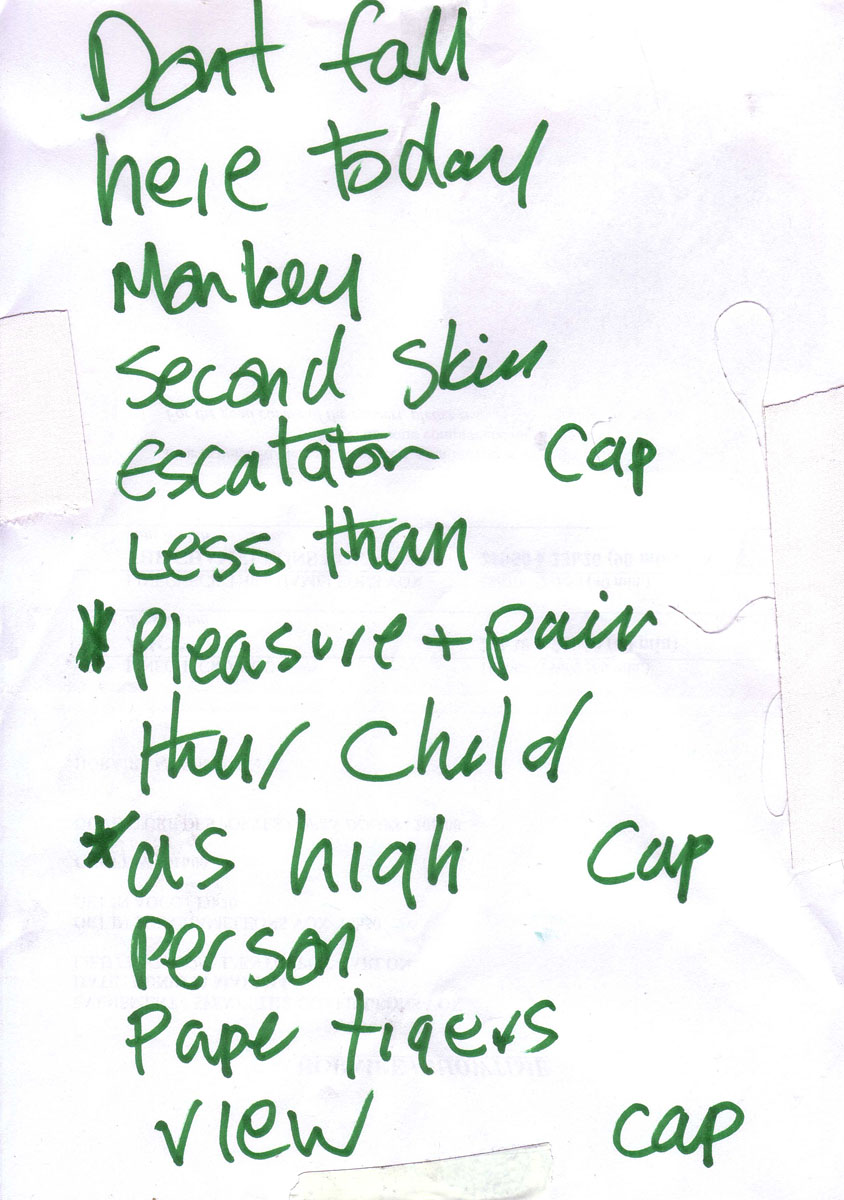 Dont fall
here today
Monkey
second skin
Escatator cap
Less than
* pleasure + pain
thur child
* as high cap
person
pape tigers
view cap